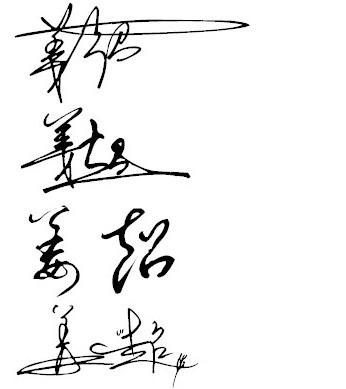 姜超
姜超
姜超
姜超